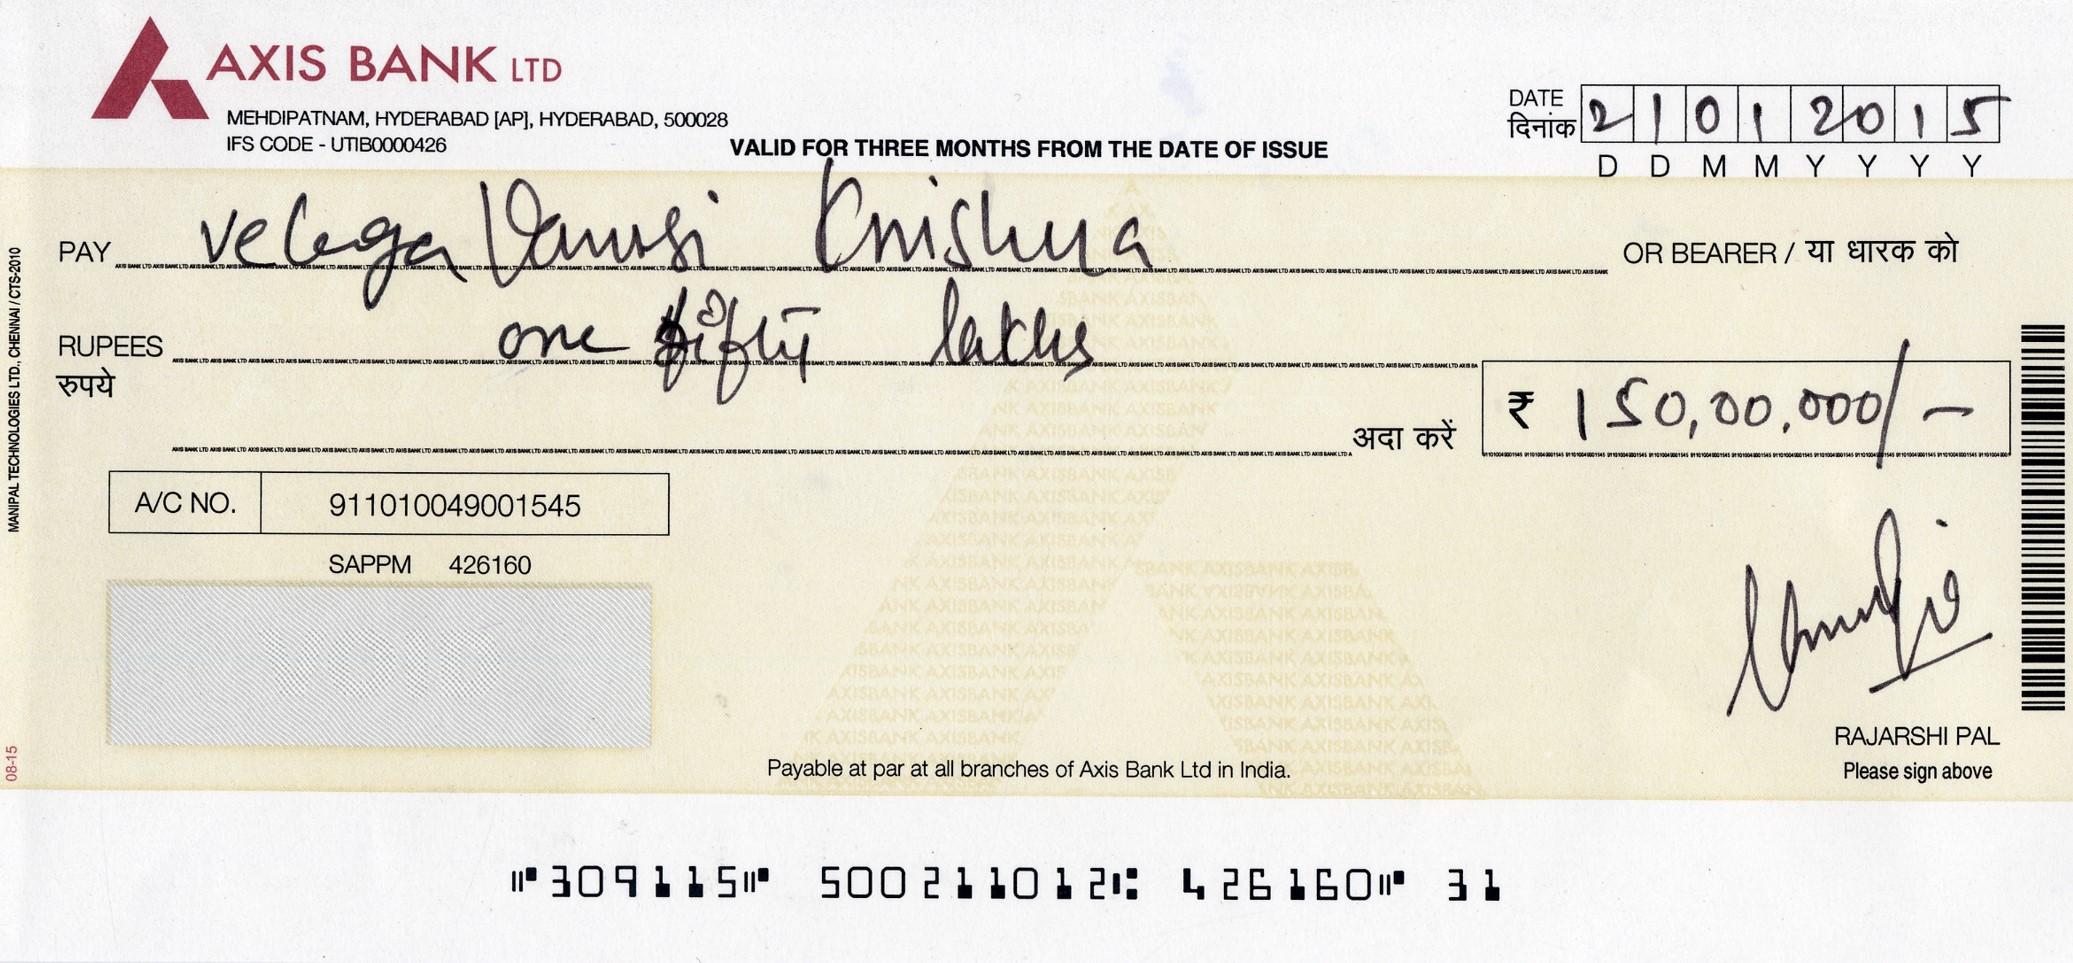 AXIS BANK LTD
MEHDIPATNAM, HYDERABAD [AP], HYDERABAD, 500028
IFS CODE - UTIB0000426
VALID FOR THREE MONTHS FROM THE DATE OF ISSUE
DATE
दिनांक
2 1 0 1 2 0 1 5
D D M M Y Y Y Y
PAY velaga Vamsi Krishna OR BEARER / या धारक को
RUPEES one fifty lakhs
रुपये
अदा करें ₹ 150,00,000/-
A/C NO. 911010049001545
SAPPM 426160
RAJARSHI PAL
Please sign above
Payable at par at all branches of Axis Bank Ltd in India.
MANIPAL TECHNOLOGIES LTD., CHENNAI / CTS-2010
08-15
⑈309115⑈ 500211012⑆ 426160⑈ 31